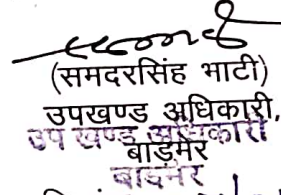 (समदरसिंह भाटी)
उपखण्ड अधिकारी,
उप खण्ड अधिकारी
बाड़मेर
बाड़मेर